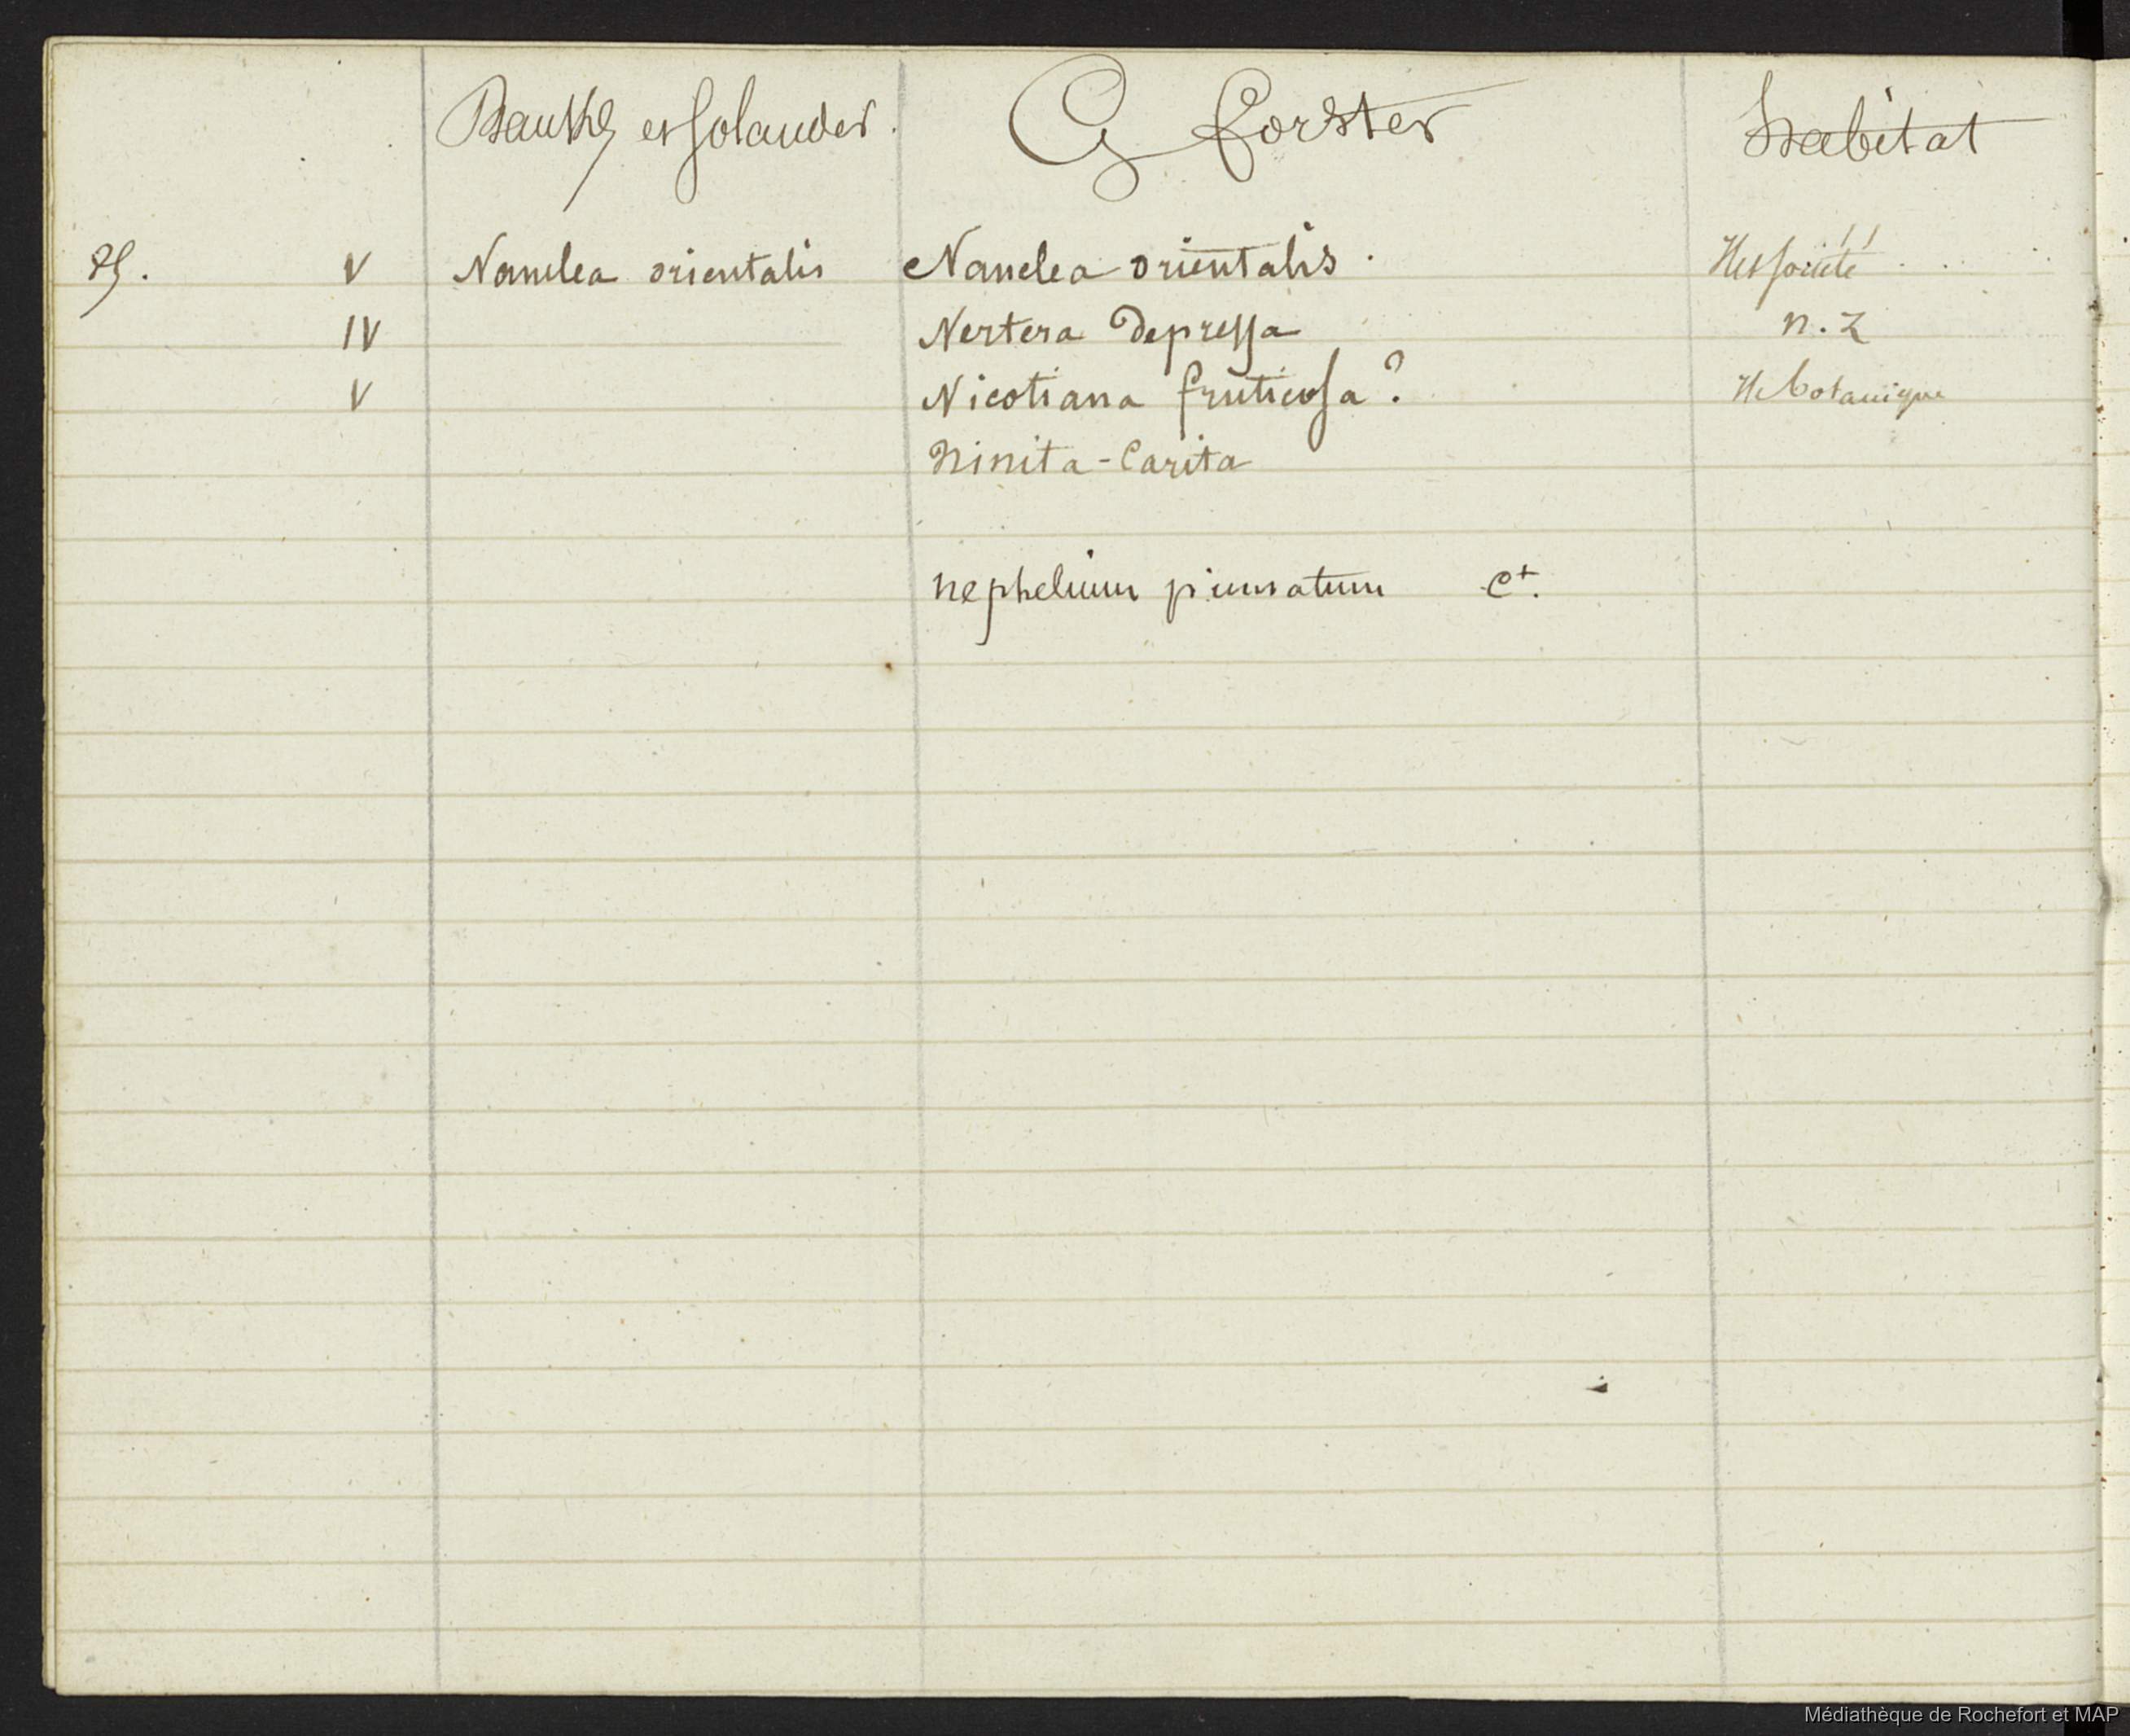 Banks et Solander. G Forster Habitat
V Nauclea orientalis Nauclea orientalis. Iles Société
IV Nertera Depressa n. Z
V Nicotiana fruticosa? H botanique
Ninita-Carita
nephelium pinnatum Ct.
Médiathèque de Rochefort et MAP